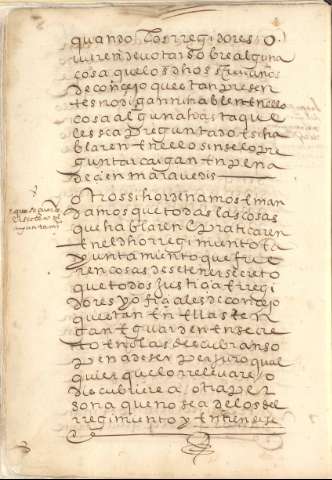 quando los rregidores o
vieren de votar sobre alguna
cosa que los dhos scrivanos
de concejo que estan presen
tes no digan ni hablen en ello
cosa alguna hasta que
les sea preguntado e si ha
blaren en ello sin se lo pre
guntar caigan en pena
de cien maravedis
que se guarde
el secreto del
ayuntami
otrossi hordenamos e man
damos que todas las cosas
que hablaren e praticaren
en el dho rregimiento e a
yuntamiento que fue
ren cosas de se tener secreto
que todos justiçia e rregi
dores y ofiçiales de conçejo
que estan en ellas ten
gan e guarden en secre
to e no las descubran so
pena de ser perjuro qual
quier que lo rrevelare / o
descubriere a / otra per
sona que no sea de los del
rregimiento y entiendese